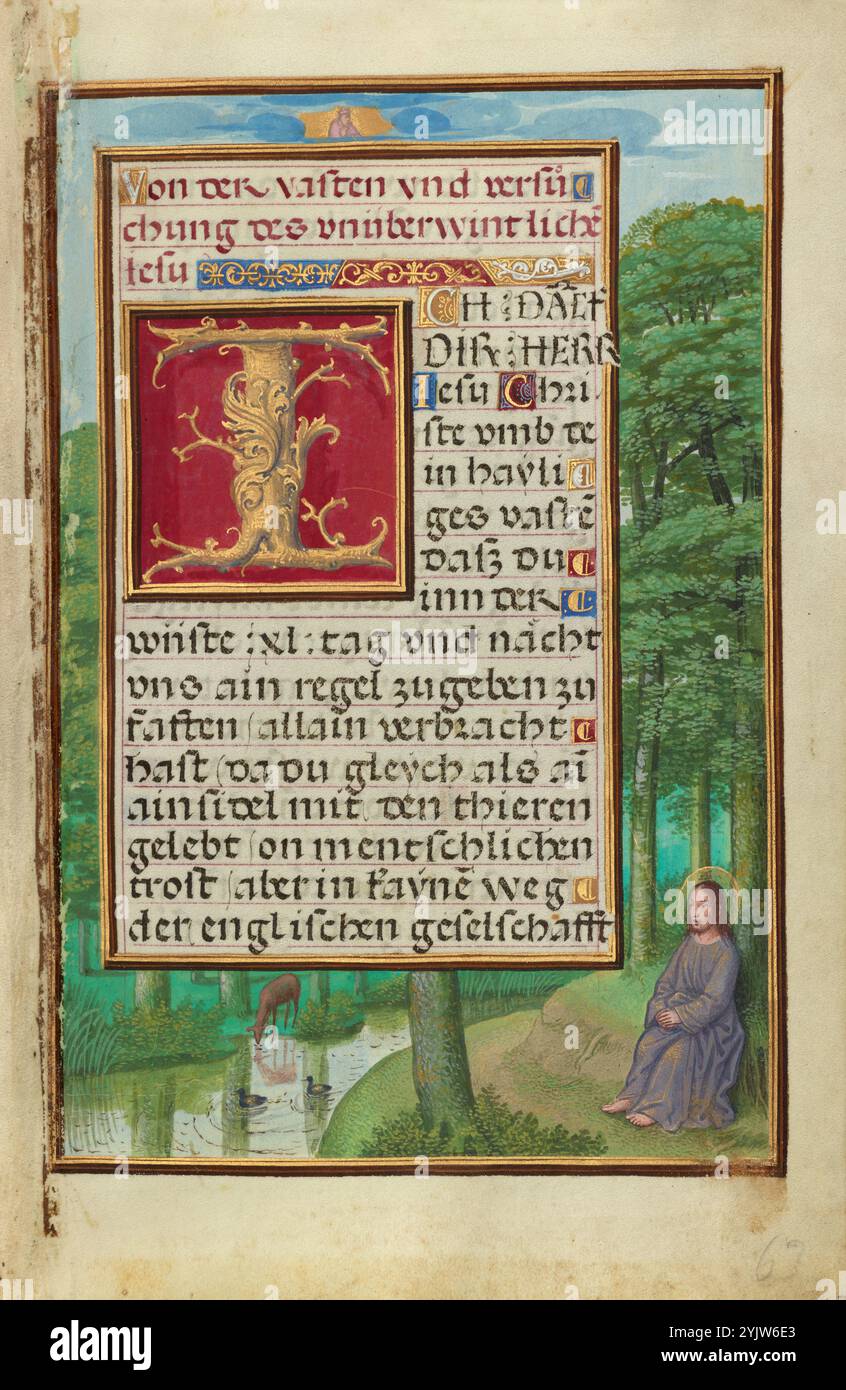 Von der vasten vnd versuͦ
chung des vnüberwintlichē
Iesu
I CH : DĀCK
DIR : HERR
Iesu Chri
ste vmb de
in hayli
ges vastē
dasz du
inn der
wüste : xl : tag vnd nacht
vns ain regel zugeben zu
fasten / allain verbracht
hast / da du gleych als aī
ainsidel mit den thieren
gelebt / on mentschlichen
trost / aber in kaynē weg
der englischen geselschafft
63
alamy
Image ID: 2YJW6E3
www.alamy.com